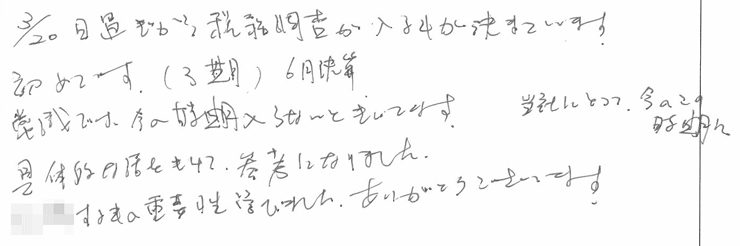 3/20日過ぎから税務調査が入る事が決まっています。
初めてです。(3期) 6月決算
では、今の時期入らないときいてます。
当社にとって、今のこの時期に
具体的な話をきけて、参考になりました。
する事の重要性学びました。ありがとうございます。